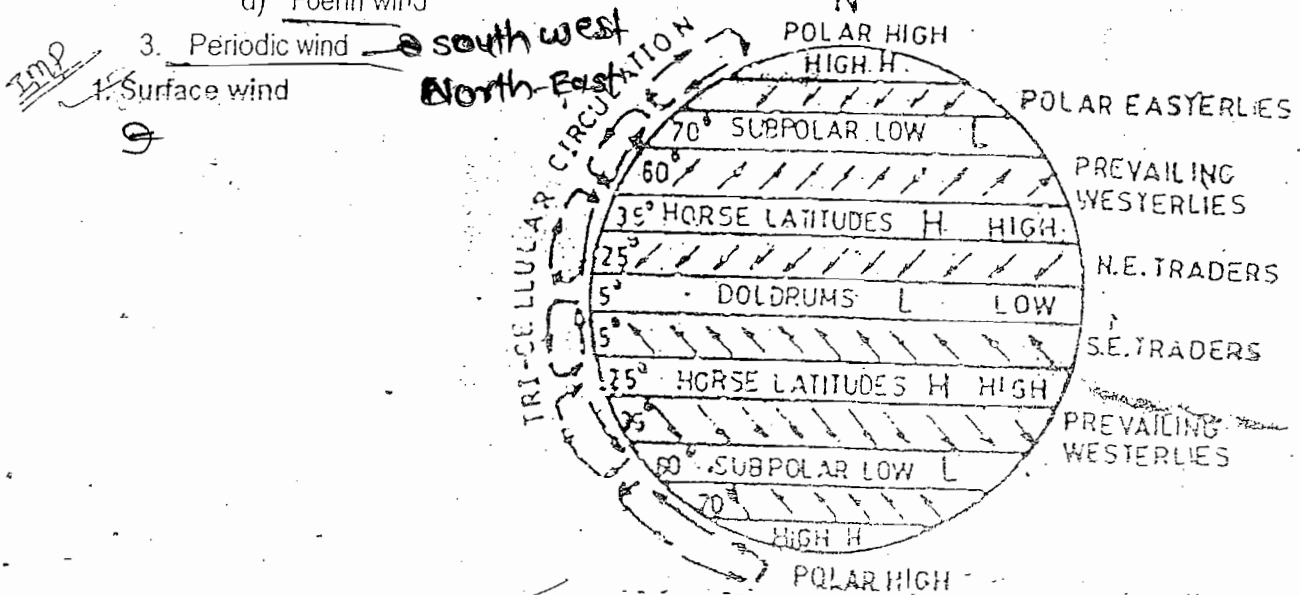 d) Foerin wind
3. Periodic wind south west
North-East
Imp
1. Surface wind
N
POLAR HIGH
HIGH H
POLAR EASTERLIES
70° SUBPOLAR LOW L
60°
PREVAILING
WESTERLIES
35° HORSE LATITUDES H HIGH
25°
N.E. TRADERS
5° DOLDRUMS L LOW
5°
S.E. TRADERS
25° HORSE LATITUDES H HIGH
35°
PREVAILING
WESTERLIES
60° SUBPOLAR LOW L
70°
HIGH H
POLAR HIGH
TRI-CELLULAR CIRCULATION